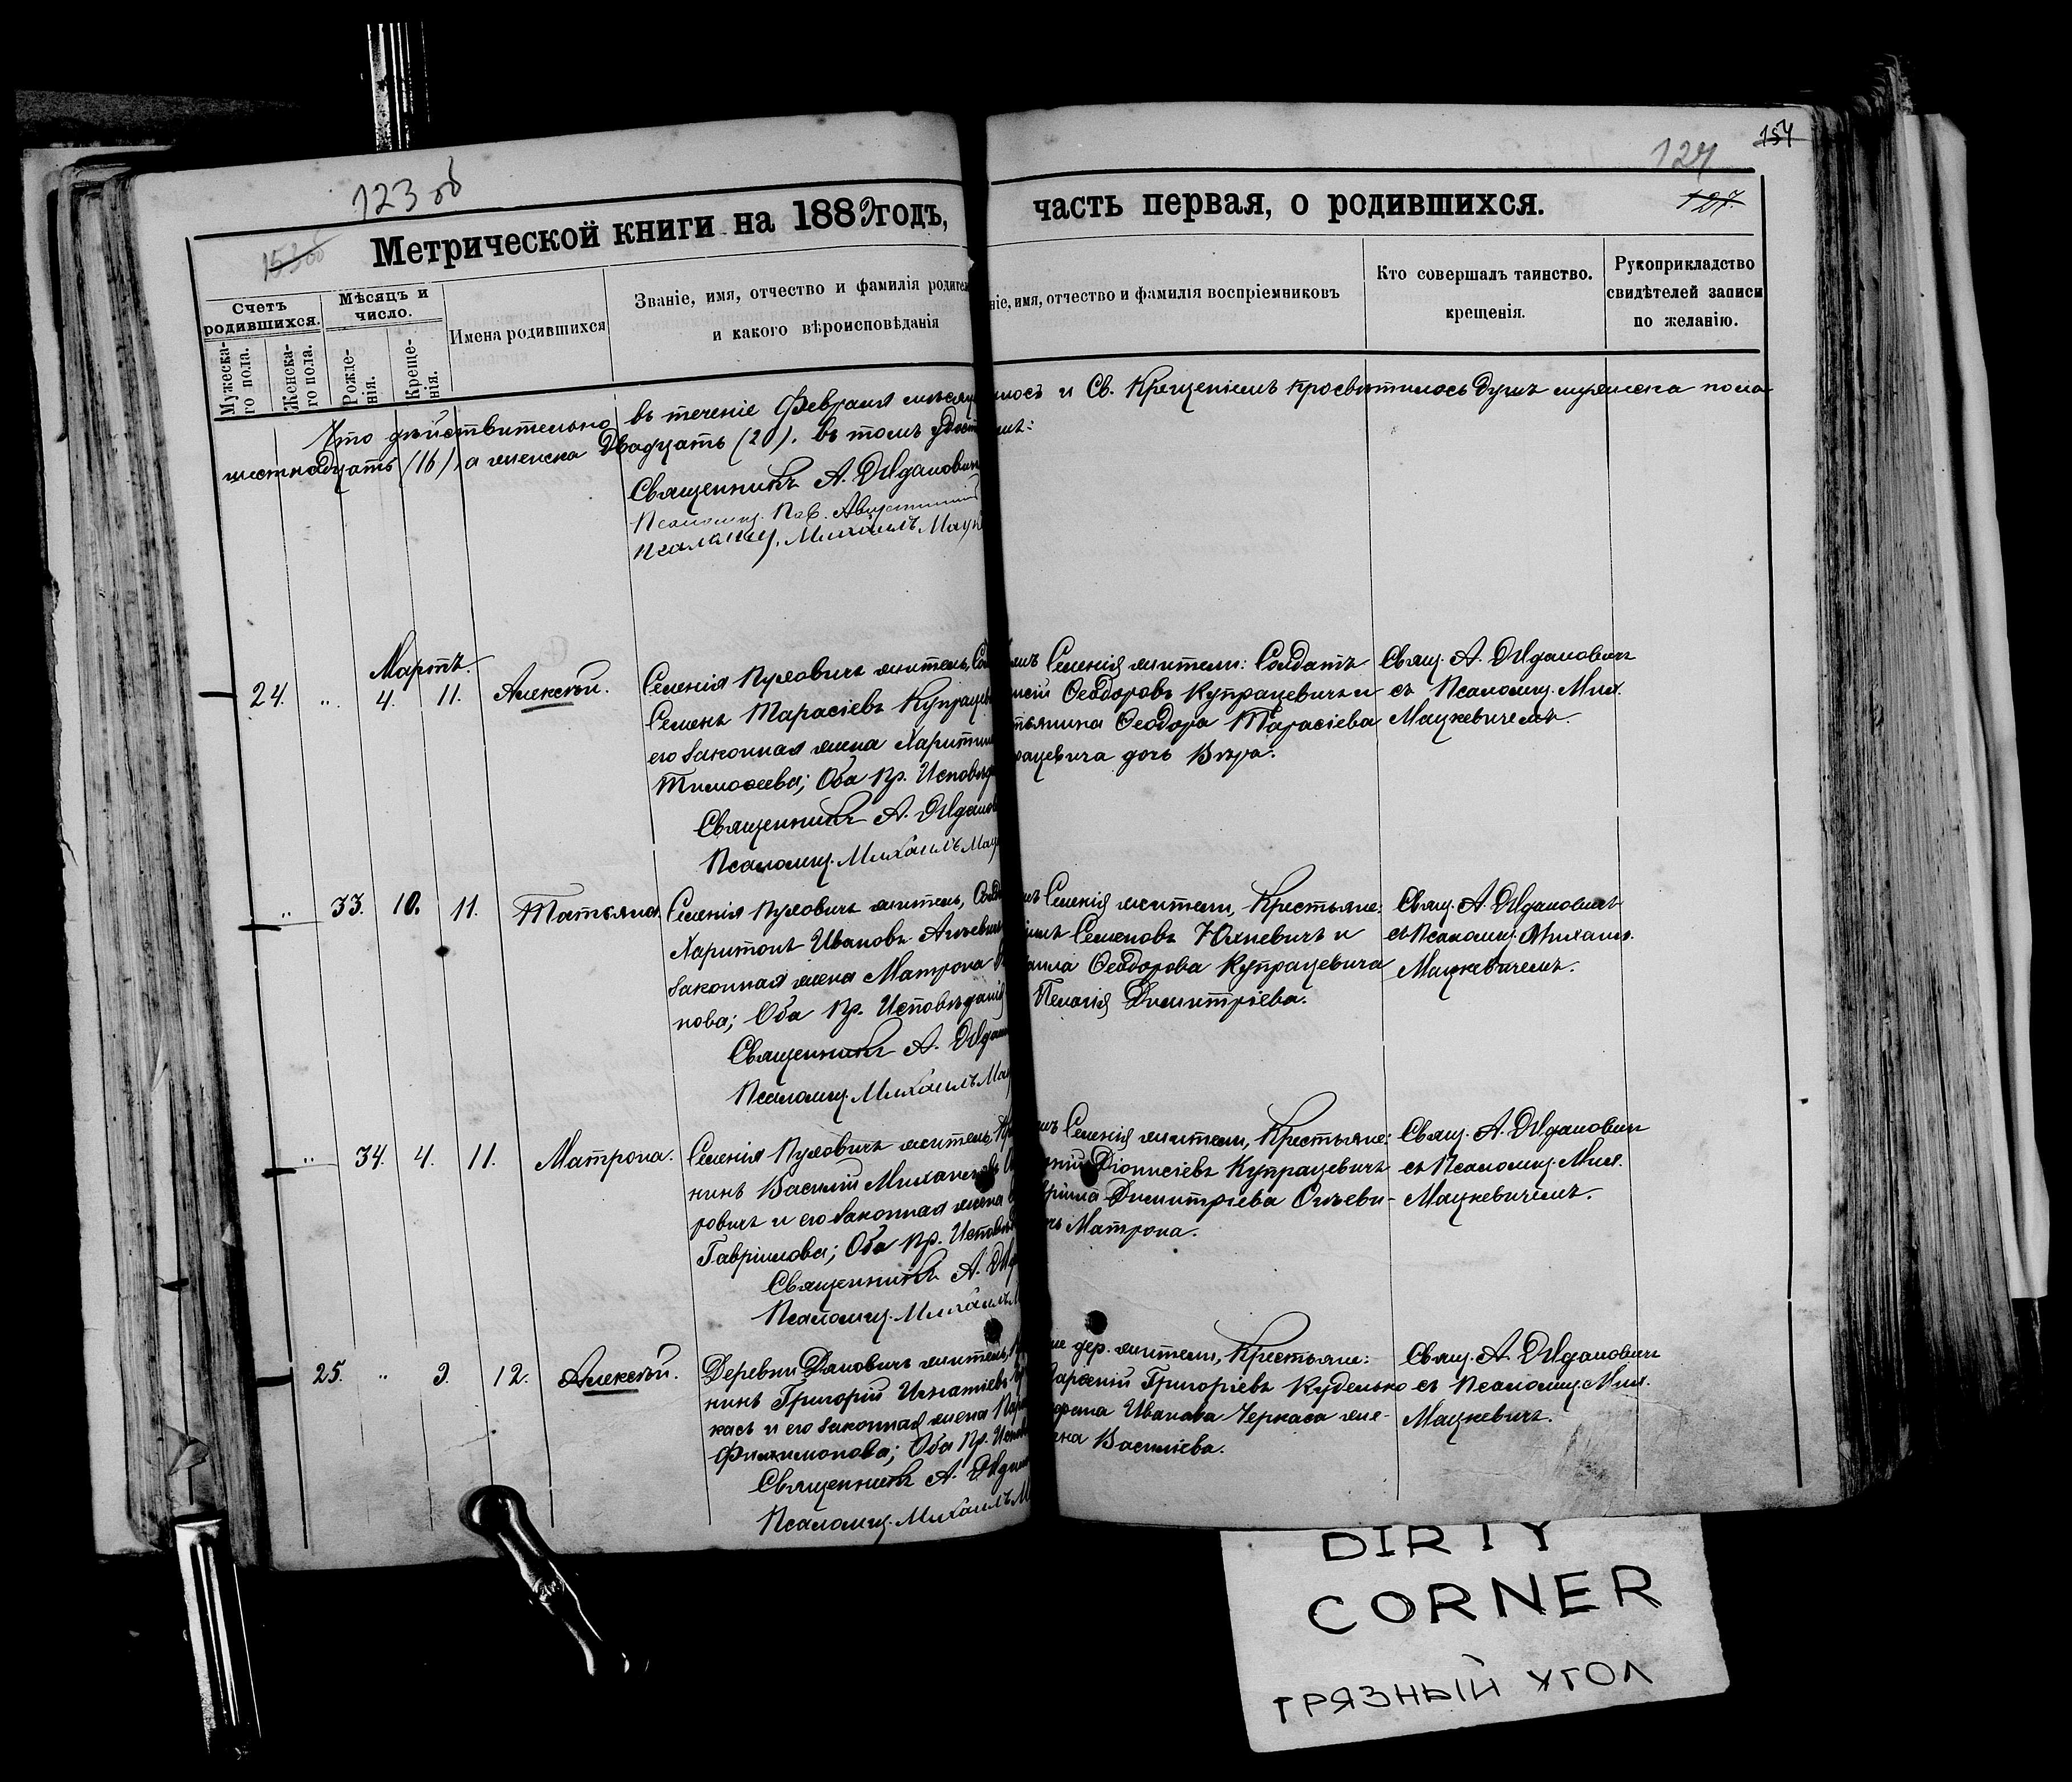 123 об
153 об
124
154
127.
Метрической книги на 1889 годъ,
часть первая, о родившихся.
Счетъ родившихся.
Мужеска-го пола.
Женска-го пола.
Мѣсяцъ и число.
Рожде-нія.
Креще-нія.
Имена родившихся
Званіе, имя, отчество и фамилія родител
и какого вѣроисповѣданія
ніе, имя, отчество и фамилія воспріемниковъ
Кто совершалъ таинство.
крещенія.
Рукоприкладство
свидѣтелей записи
по желанію.
Что дѣйствительно въ теченіе Февраля мѣсяц
шестнадцать (16), а женска двадцать (20). въ томъ
Священникъ А. Жданович
Псаломщ. Пав.
Псаломщ. Михаилъ Мацк
и Св. Крещеніемъ просвѣтилось душъ мужеска пола
Мартъ.
24. „ 4. 11. Алексѣй.
Селенія Пуховичъ житель, Сол
Семенъ Тарасіевъ Купрацев
его законная жена Харитин
Тимофеева; Оба Пр. Исповѣд
Священникъ А. Жданов
Псаломщ. Михаилъ Мац
Селенія жители: Солдатъ
Ѳеодоровъ Купрацевичъ и
тьянина Ѳеодора Тарасіева
рацевича дочь Вѣра.
Свящ. А. Жданович
съ Псаломщ. Мих.
Мацкевичемъ.
„ 33. 10. 11. Татьяна.
Селенія Пуховичъ житель, Солд
Харитонъ Ивановъ
законная жена Матрона
нова; Оба Пр. Исповѣданія
Священникъ А. Ждан
Псаломщ. Михаилъ Мац
Селенія жители, Крестьяне:
Семеновъ Юхневичъ и
Ѳеодорова Купрацевича
Пелагія Димитріева.
Свящ. А. Жданович
съ Псаломщ. Михаил.
Мацкевичемъ.
„ 34. 4. 11. Матрона.
Селенія Пуховичъ житель, Кр
нинъ Василій Михаиловъ
ровичъ и его законная жена
Гавріилова; Оба Пр. Исповѣд
Священникъ А. Жд
Псаломщ. Михаилъ М
Селенія жители, Крестьяне:
Діонисіевъ Купрацевичъ
вріила Димитріева
Матрона.
Свящ. А. Жданович
съ Псаломщ. Мих.
Мацкевичемъ.
25. „ 9. 12. Алексѣй.
Деревни Дяковичъ житель,
нинъ Григорій Игнатіевъ
касъ и его законная жена
Филимонова; Оба Пр. Испов
Священникъ А. Ждан
Псаломщ. Михаилъ М
дер. жители, Крестьяне:
Григоріевъ Куделько
Иванова Черкаса же-
на Василіева.
Свящ. А. Жданович
съ Псаломщ. Мих.
Мацкевич.
DIRTY
CORNER
ГРЯЗНЫЙ УГОЛ